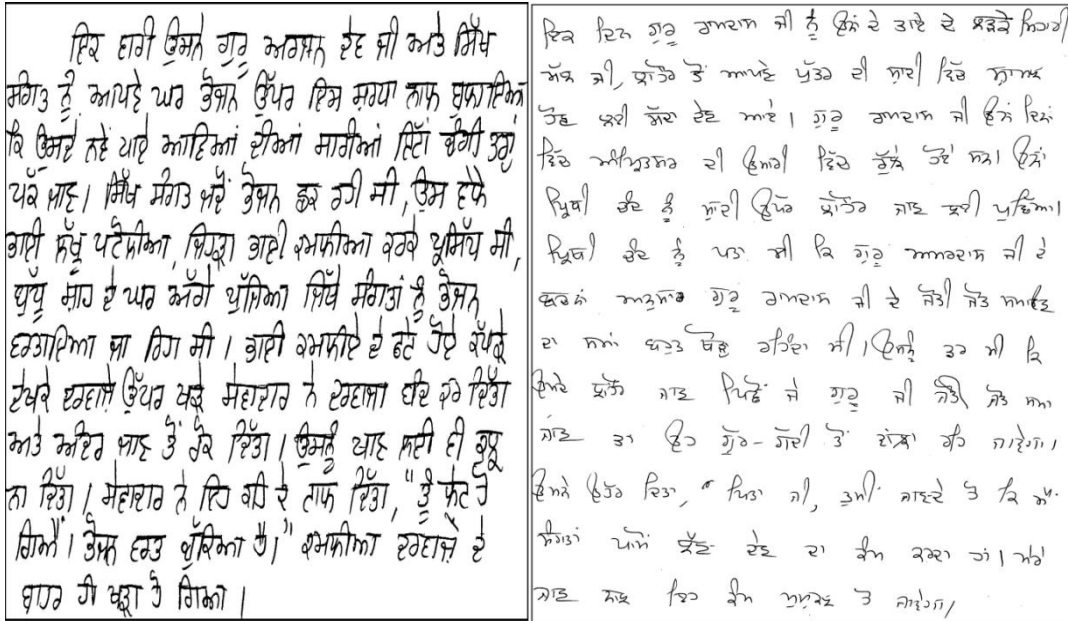 ਇਕ ਵਾਰੀ ਉਸਨੇ ਗੁਰੂ ਅਰਜਨ ਦੇਵ ਜੀ ਅਤੇ ਸਿੱਖ
ਸੰਗਤ ਨੂੰ ਆਪਣੇ ਘਰ ਭੋਜਨ ਉੱਪਰ ਇਸ ਸ਼ਰਧਾ ਨਾਲ ਬੁਲਾਇਆ
ਕਿ ਉਸਦੇ ਨਵੇਂ ਪਾਏ ਆਵਿਆਂ ਦੀਆਂ ਸਾਰੀਆਂ ਇੱਟਾਂ ਚੰਗੀ ਤਰ੍ਹਾਂ
ਪੱਕ ਜਾਣ। ਸਿੱਖ ਸੰਗਤ ਜਦੋਂ ਭੋਜਨ ਛਕ ਰਹੀ ਸੀ, ਉਸ ਵੇਲੇ
ਭਾਈ ਲੱਖੂ ਪਟੋਲੀਆ, ਜਿਹੜਾ ਭਾਈ ਕਮਲੀਆ ਕਰਕੇ ਪ੍ਰਸਿੱਧ ਸੀ,
ਬੁੱਧੂ ਸ਼ਾਹ ਦੇ ਘਰ ਅੱਗੇ ਪੁੱਜਿਆ ਜਿੱਥੇ ਸੰਗਤਾਂ ਨੂੰ ਭੋਜਨ
ਵਰਤਾਇਆ ਜਾ ਰਿਹਾ ਸੀ। ਭਾਈ ਕਮਲੀਏ ਦੇ ਫਟੇ ਹੋਏ ਕੱਪੜੇ
ਦੇਖਕੇ ਦਰਵਾਜ਼ੇ ਉੱਪਰ ਖੜ੍ਹੇ ਸੇਵਾਦਾਰ ਨੇ ਦਰਵਾਜਾ ਬੰਦ ਕਰ ਦਿੱਤਾ
ਅਤੇ ਅੰਦਰ ਜਾਣ ਤੋਂ ਰੋਕ ਦਿੱਤਾ। ਉਸਨੂੰ ਖਾਣ ਲਈ ਵੀ ਕੁਝ
ਨਾ ਦਿੱਤਾ। ਸੇਵਾਦਾਰ ਨੇ ਇਹ ਕਹਿ ਦੇ ਟਾਲ ਦਿੱਤਾ, "ਤੂੰ ਲੇਟ ਹੋ
ਗਿਐਂ। ਭੋਜਨ ਵਰਤ ਚੁੱਕਿਆ ਹੈ।" ਕਮਲੀਆ ਦਰਵਾਜ਼ੇ ਦੇ
ਬਾਹਰ ਹੀ ਖੜ੍ਹਾ ਹੋ ਗਿਆ।
ਇਕ ਦਿਨ ਗੁਰੂ ਰਾਮਦਾਸ ਜੀ ਨੂੰ ਉਨਾਂ ਦੇ ਤਾਏ ਦੇ ਲੜਕੇ ਸਿਹਾਰੀ
ਮੱਲ ਜੀ, ਲਾਹੌਰ ਤੋਂ ਆਪਣੇ ਪੁੱਤਰ ਦੀ ਸ਼ਾਦੀ ਵਿੱਚ ਸ਼ਾਮਲ
ਹੋਣ ਲਈ ਸੱਦਾ ਦੇਣ ਆਏ। ਗੁਰੂ ਰਾਮਦਾਸ ਜੀ ਉਨਾਂ ਦਿਨਾਂ
ਵਿੱਚ ਅੰਮ੍ਰਿਤਸਰ ਦੀ ਉਸਾਰੀ ਵਿੱਚ ਰੁੱਝੇ ਹੋਏ ਸਨ। ਉਨਾਂ
ਪ੍ਰਿਥੀ ਚੰਦ ਨੂੰ ਸ਼ਾਦੀ ਉੱਪਰ ਲਾਹੌਰ ਜਾਣ ਲਈ ਪੁਛਿਆ।
ਪ੍ਰਿਥੀ ਚੰਦ ਨੂੰ ਪਤਾ ਸੀ ਕਿ ਗੁਰੂ ਅਮਰਦਾਸ ਜੀ ਦੇ
ਬਚਨਾਂ ਅਨੁਸਾਰ ਗੁਰੂ ਰਾਮਦਾਸ ਜੀ ਦੇ ਜੋਤੀ ਜੋਤ ਸਮਾਉਣ
ਦਾ ਸਮਾਂ ਬਹੁਤ ਥੋੜਾ ਰਹਿੰਦਾ ਸੀ। ਉਸਨੂੰ ਡਰ ਸੀ ਕਿ
ਉਸਦੇ ਲਾਹੌਰ ਜਾਣ ਪਿਛੋਂ ਜੇ ਗੁਰੂ ਜੀ ਜੋਤੀ ਜੋਤ ਸਮਾ
ਜਾਣ ਤਾਂ ਉਹ ਗੁਰ-ਗੱਦੀ ਤੋਂ ਵਾਂਝਾ ਰਹਿ ਜਾਵੇਗਾ।
ਉਸਨੇ ਉੱਤਰ ਦਿਤਾ, "ਪਿਤਾ ਜੀ, ਤੁਸੀਂ ਜਾਣਦੇ ਹੋ ਕਿ ਮੈਂ
ਸੰਗਤਾਂ ਪਾਸੋਂ ਦੇਣ ਦਾ ਕੰਮ ਕਰਦਾ ਹਾਂ। ਮੇਰੇ
ਜਾਣ ਨਾਲ ਇਹ ਕੰਮ ਮੁਸ਼ਕਲ ਹੋ ਜਾਵੇਗਾ।